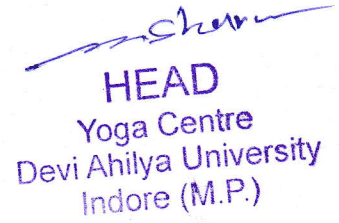 HEAD
Yoga Centre
Devi Ahilya University
Indore (M.P.)